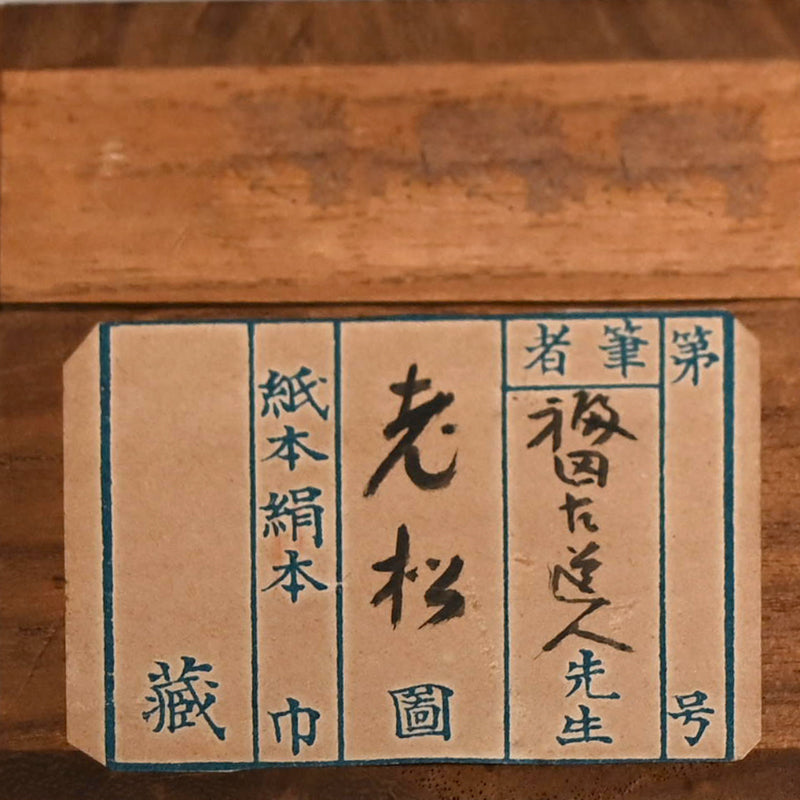 第 号
筆者
福田古道人先生
老松圖
紙本絹本 巾
藏